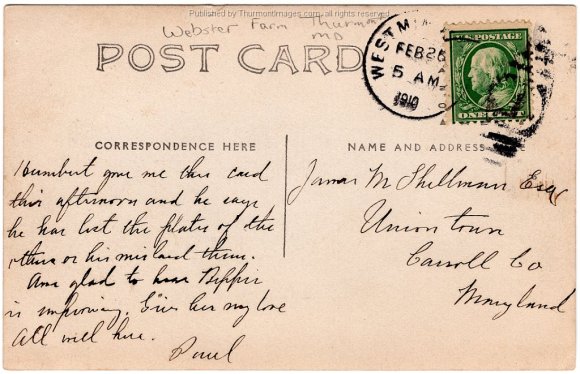 Published by ThurmontImages.com, all rights reserved
Webster Farm Thurmont
MD
POST CARD
WESTMIN
FEB 26
5 AM
1910
U.S. POSTAGE
ONE CENT
CORRESPONDENCE HERE
NAME AND ADDRESS
Humbert gave me this card
this afternoon and he says
he has lost the plates of the
others or has mislaid them.
Am glad to hear
is improving. Give her my love
All well here.
Paul
James M Shellman Esq
Uniontown
Carroll Co
Maryland